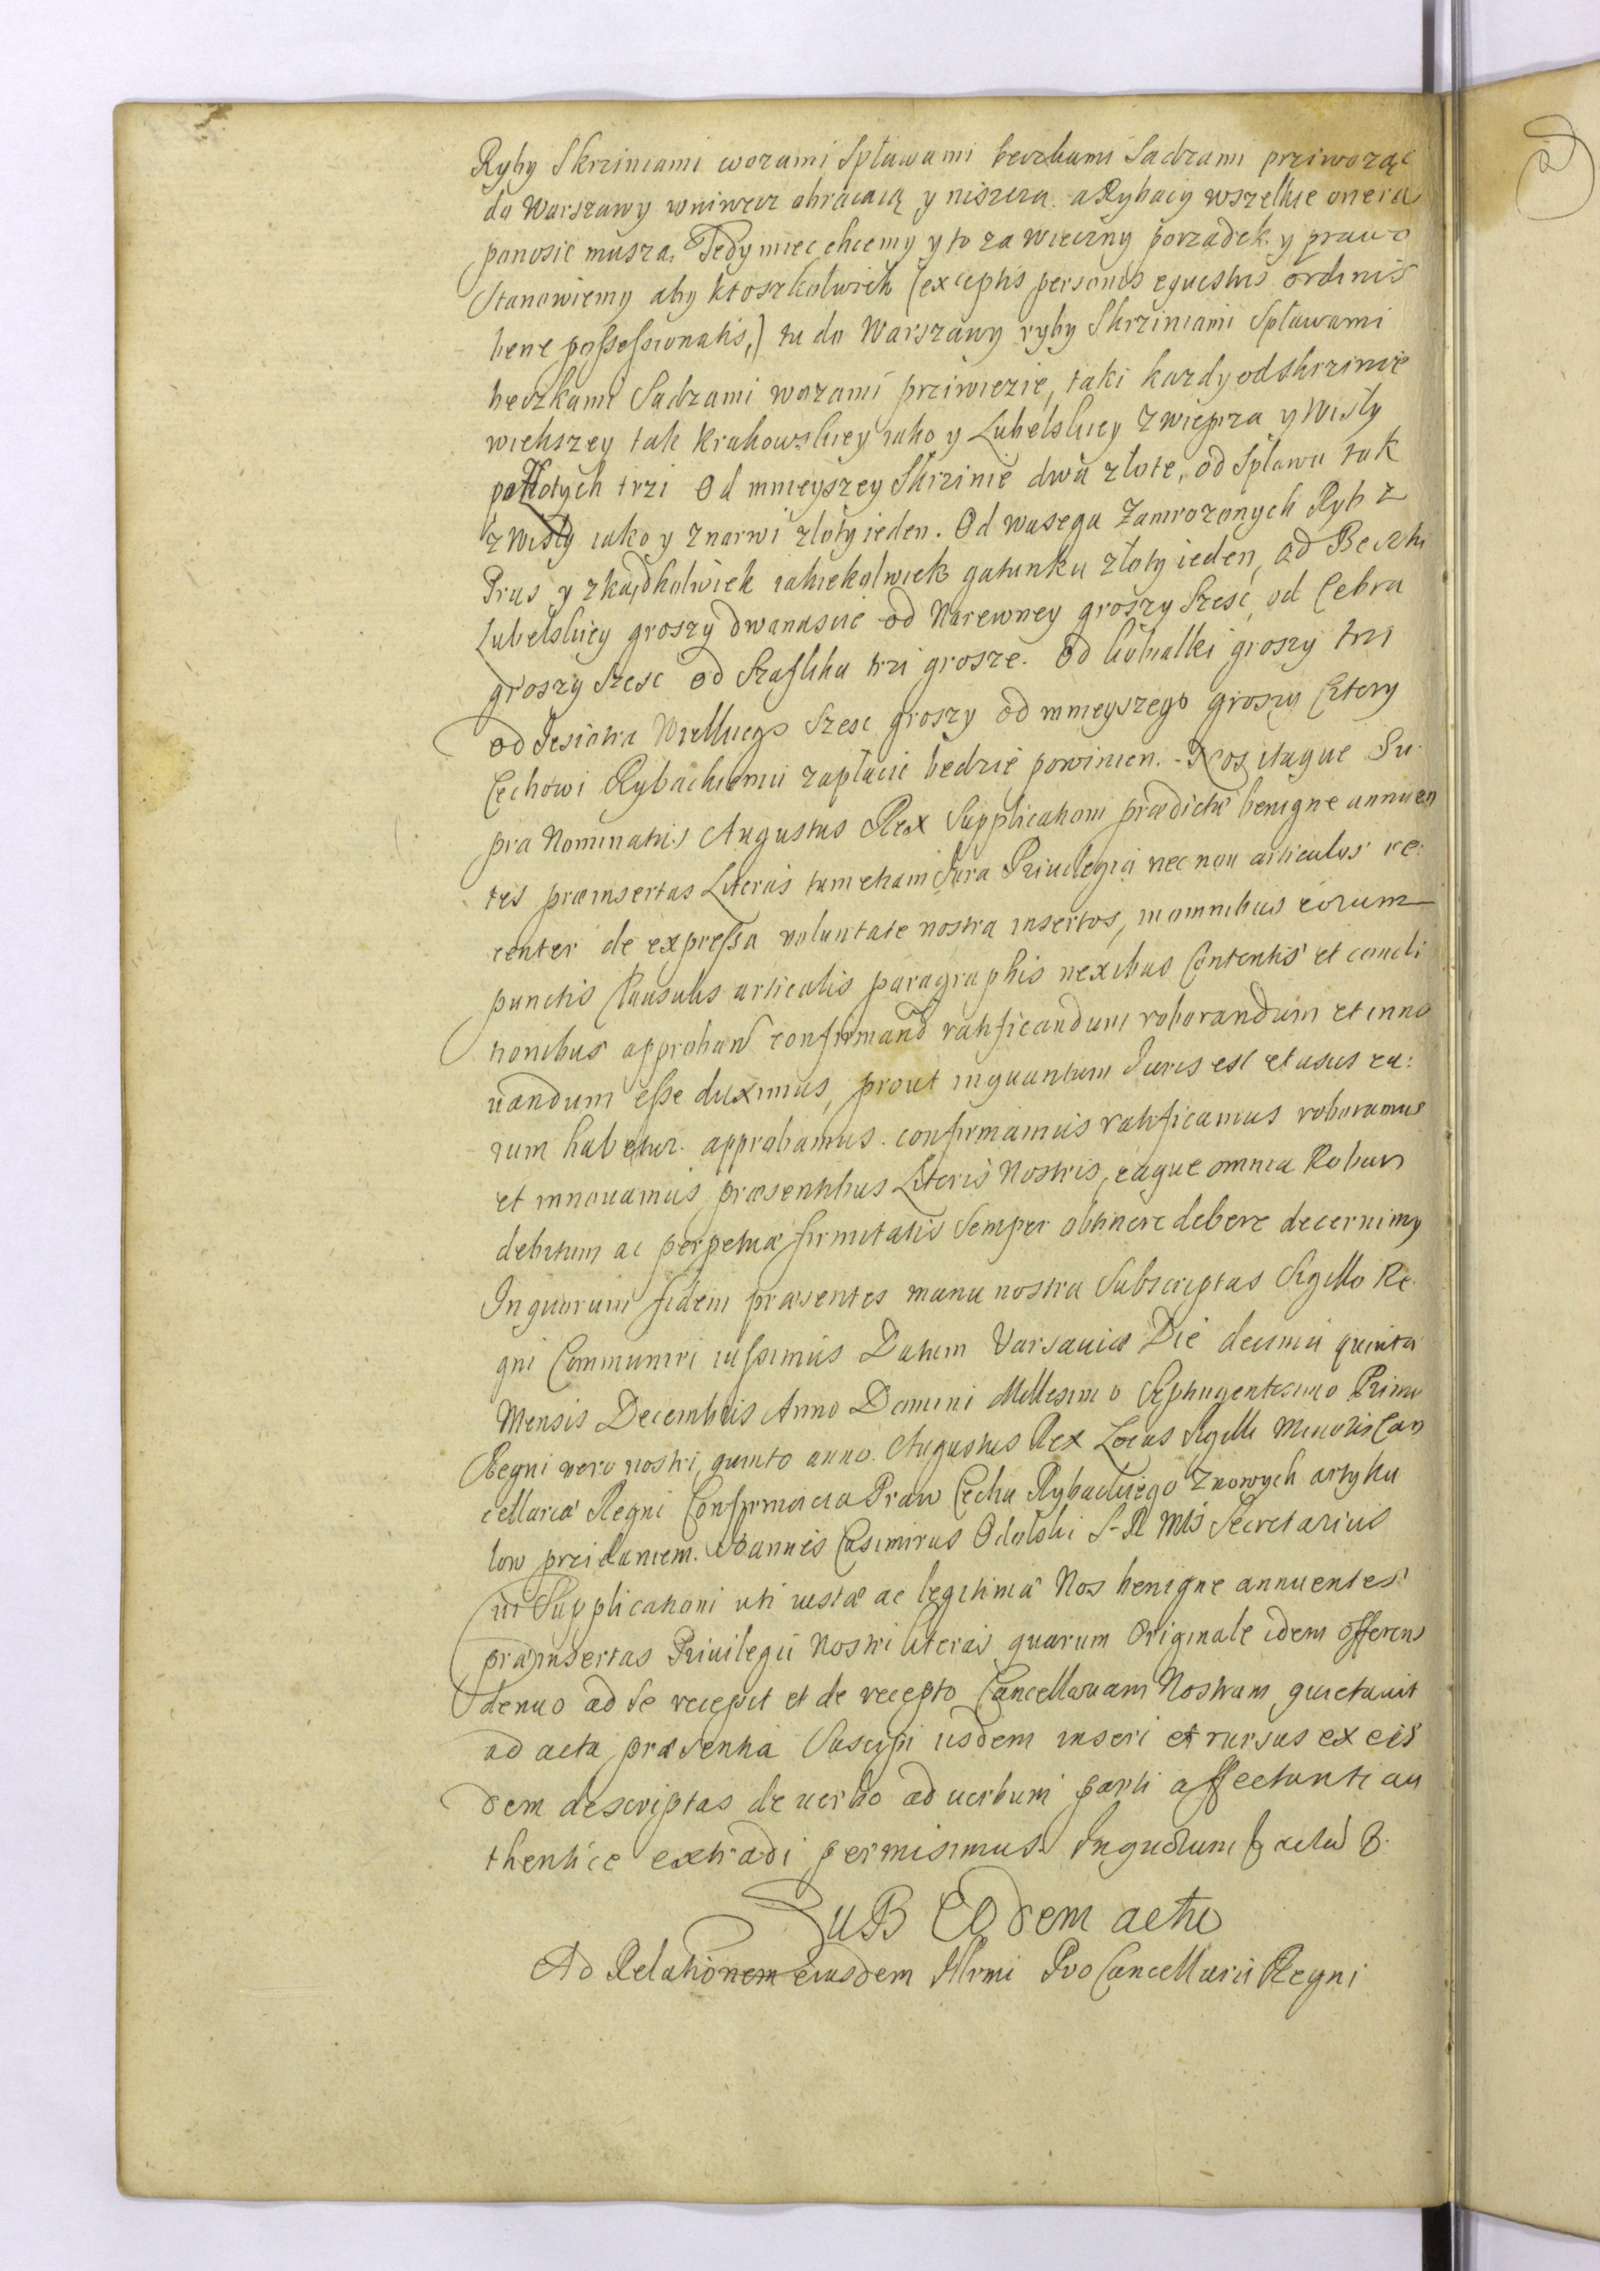 Ryby Skrziniami wozami Spławami beczkami Sadzami przywożąc
do Warszawy wniwecz obracaią y niszcza. a Rybacy wszelkie onera
ponosic musza, Tedy miec chcemy y to za wieczny porządek y prawo
Stanowiemy aby ktoszkolwiek (exceptis personis equestris ordinis
bene possessionatis,) tu do Warszawy ryby Skrziniami Spławami
beczkami Sadzami wozami prziwiezie, taki kazdy od skrzinie
wiekszey tak krakowskiey iako y Lubelskiey z wieprza y Wisły
po złotych trzi Od mnieyszey Skrzinie dwa złote, od Spławu tak
z Wisły iako y z narwi złoty ieden. Od wasęga Zamrożonych Ryb z
Prus y zkądkolwiek iakiekolwiek gatunku złoty ieden, od Beczki
Lubelskiey groszy dwanascie od Narewney groszy Szesc, od Cebra
groszy szesc od Szaflika trzi grosze. Od kobiałki groszy trzi
od Jesiotra Wielkiego Szesc groszy od mnieyszego groszy Cztery
Cechowi Rybackiemu zapłacic bedzie powinien. - Nos itaque Su-
pra Nominatus Augustus Rex Supplicationi prædictæ benigne annuen
tes præinsertas Literas tum etiam Jura Priuilegia nec non articulos re:
center de expressa voluntate nostra insertos, in omnibus eorum
punctis Clausulis articulis paragraphis nexibus Contentis et condi
tionibus approband confirmand ratificandum roborandum et inno
uandum esse duximus, prout in quantum Juris est et usus ea:
rum habetur. approbamus. confirmamus ratificamus roboramus
et innouamus præsentibus Literis Nostris, eaque omnia Robur
debitum ac perpetuæ firmitatis semper obtinere debere decernimy
In quorum fidem præsentes manu nostra Subscriptas Sigillo Re-
gni Communiri iussimus Datum Varsauiæ Die decima quinta
Mensis Decembris Anno Domini Millesimo Septingentesimo Primo
Regni vero nostri quinto anno. Augustus Rex Locus Sigilli Minoris Can
cellariæ Regni Confirmacia Praw Cechu Rybackiego z nowych artyku
low przidaniem. Joannes Casimirus Odolski S-R Mtis Secretarius
Supplicationi uti iustæ ac legitimæ Nos benigne annuentes
præinsertas Priuilegii Nostri literas quarum Originale idem offerens
denuo ad se recepit et de recepto Cancellariam Nostram quietauit
ad acta præsentia Suscipi iisdem inseri et rursus ex eis
dem descriptas de uerbo ad uerbum parti affectanti au
thentice extradi permisimus. In quorum &
SuB EOdem actu
Ad Relationem eiusdem Illrmi ProCancellarii Regni